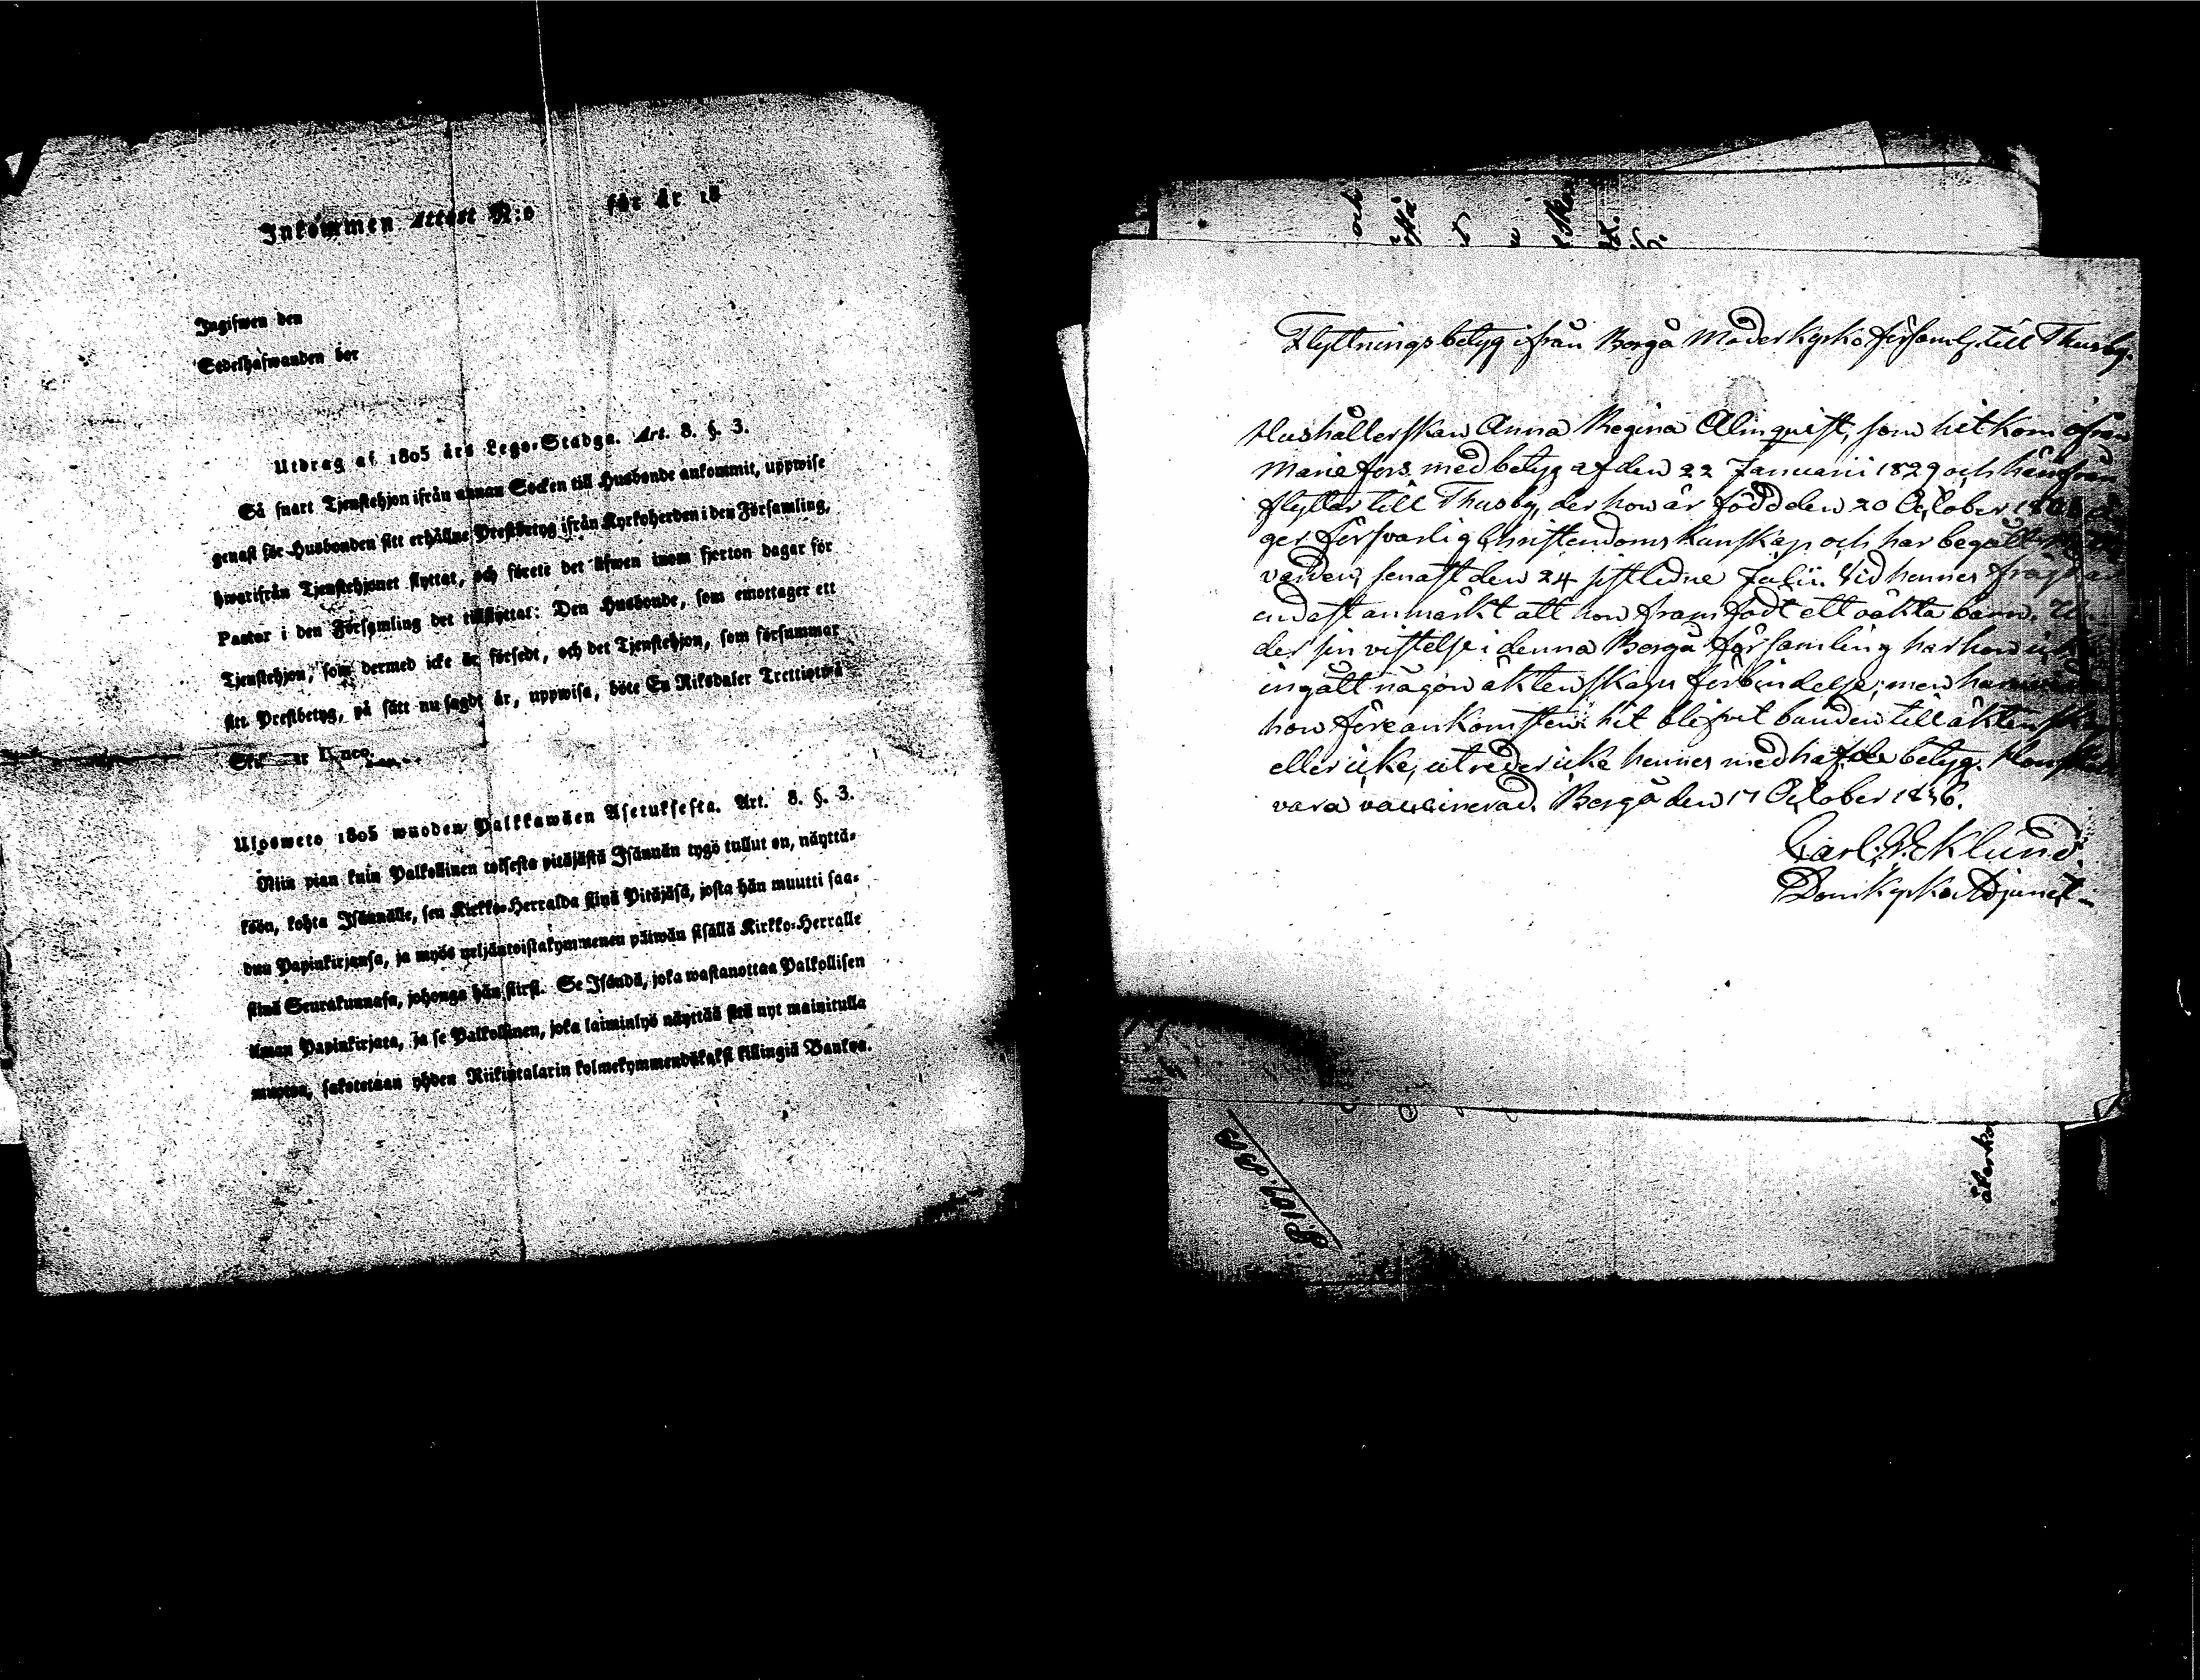 Inkommen Attest N:o för år 18
Ingifwen den
Sedelhafwanden bor
Utdrag af 1805 års Lego-Stadga. Art. 8. §. 3.
Så snart Tjenstehjon ifrån annan Socken till Husbonde ankommit, uppwise
genast för Husbonden sitt erhållne Prestbetyg ifrån Kyrkoherden i den Församling,
hwarifrån Tjenstehjonet flyttat, och förete det äfwen inom fjorton dagar för
Pastor i den Församling det tillflyttat: Den Husbonde, som emottager ett
Tjenstehjon, som dermed icke är försedt, och det Tjenstehjon, som försummar
sitt Prestbetyg, på sätt nu sagdt är, uppwisa, böte En Riksdaler Trettiotwå
Banco.
Ulosweto 1805 wuoden Palkkawäen Asetuksesta. Art. 8. §. 3.
Niin pian kuin Palkollinen toisesta pitäjästä Isännän tygö tullut on, näyttä-
köön, kohta Isännälle, sen Kirkko-Herralda siinä Pitäjäsä, josta hän muutti saa-
dun Papinkirjansa, ja myös neljäntoistakymmenen päiwän sisällä Kirkko-Herralle
siinä Seurakunnasa, johonga hän siirsi. Se Isändä, joka wastanottaa Palkollisen
ilman Papinkirjata, ja se Palkollinen, joka laiminlyö näyttää sitä nyt mainitulla
muoton, sakotetaan yhden Riikintalarin kolmekymmendäkaksi killingiä Bankoa.
Flyttningsbetyg ifrån Borgå Moderkyrkoförsamlg till Thusby.
Hushållerskan Anna Regina Almquist, som hitkom ifrån
Mariefors med betyg af den 22 Januarii 1829 och härifrån
flyttar till Thusby, der hon är född den 20 October
ger försvarlig Christendoms kunskap och har begått
varden senast den 24 sistledne Julii. Vid hennes frägd är
endast anmärkt att hon framfödt ett oäkta barn. Un-
der sin vistelse i denna Borgå församling har hon icke
ingått någon äktenskaps förbindelse; men
hon före ankomsten hit blifvit bunden till äktenskap
eller icke, utreder icke hennes medhafde betyg. Hon
vara vaccinerad. Borgå den 17 October 1836.
Carl Eklund.
Domkyrko Adjunct
och